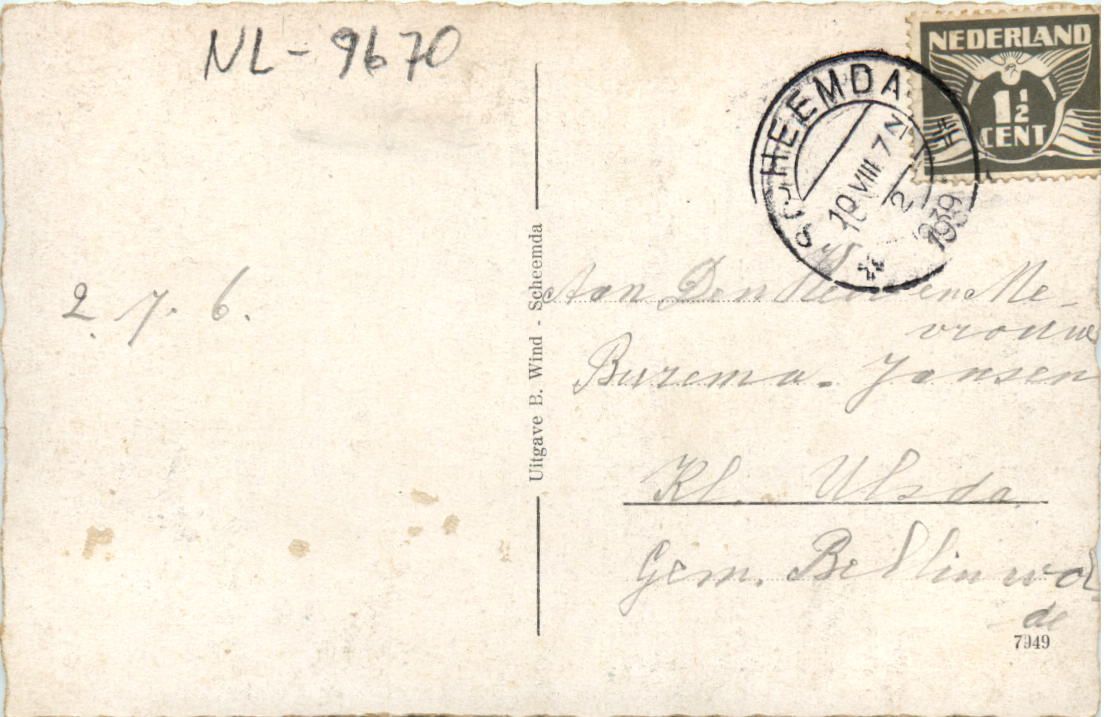 NL-9670
NEDERLAND
1½
CENT
SCHEEMDA
10 VIII 7 N
2
1939
2. 7. 6.
Uitgave E. Wind - Scheemda
Aan Den Heer en Me-
vrouw
Burema - Jansen
Kl. Ulsda
Gem. Bellinwol-
de
7949